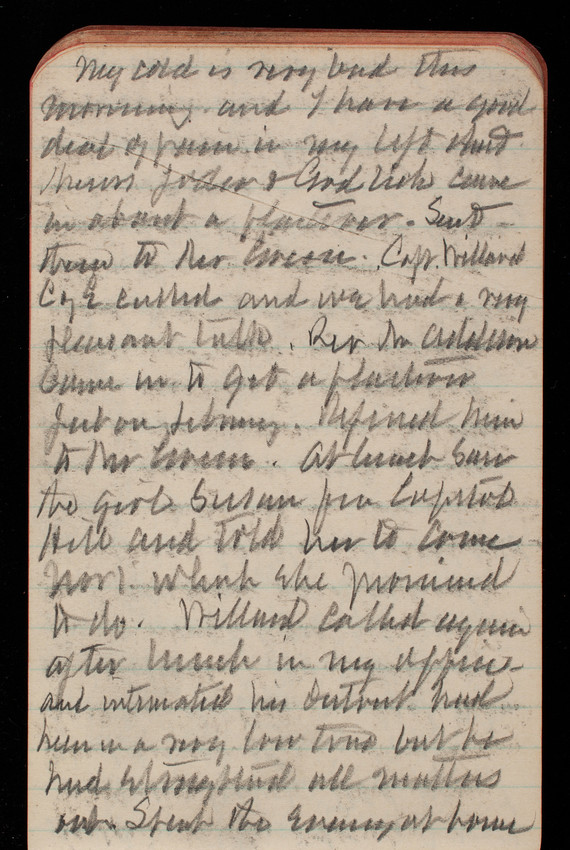 My cold is very bad this
morning and I have a good
deal of pain in my left chest
Messrs & Godrich came
in about a plasterer. Sent
them to Mr Green. Capt. Willard
Co E called and we had a very
pleasant talk. Rev Dr Addison
came in to get a plasterer
put on. Referred him
to Mr Green. At lunch saw
the girl Susan from Capitol
Hill and told her to come
which she promised
to do. Willard called again
after lunch in my office
and intimated his had
been in a very low tone but he
had straightened all matters
out. Spent the Evening at home